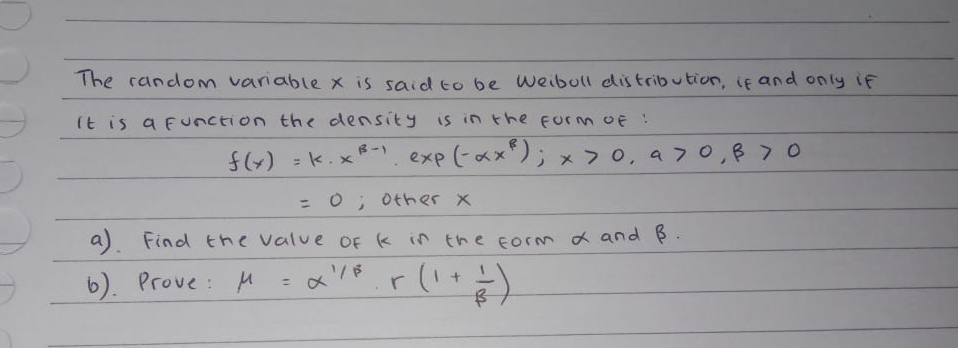 The random variable x is said to be Weiboll distribution, if and only if
it is a function the density is in the form of :
f(x) = k . x^β-1 . exp (-αx^β) ; x > 0, a > 0, β > 0
= 0 ; other x
a). Find the value of k in the form α and β.
b). Prove : μ = α^1/β . r (1 + 1/β)